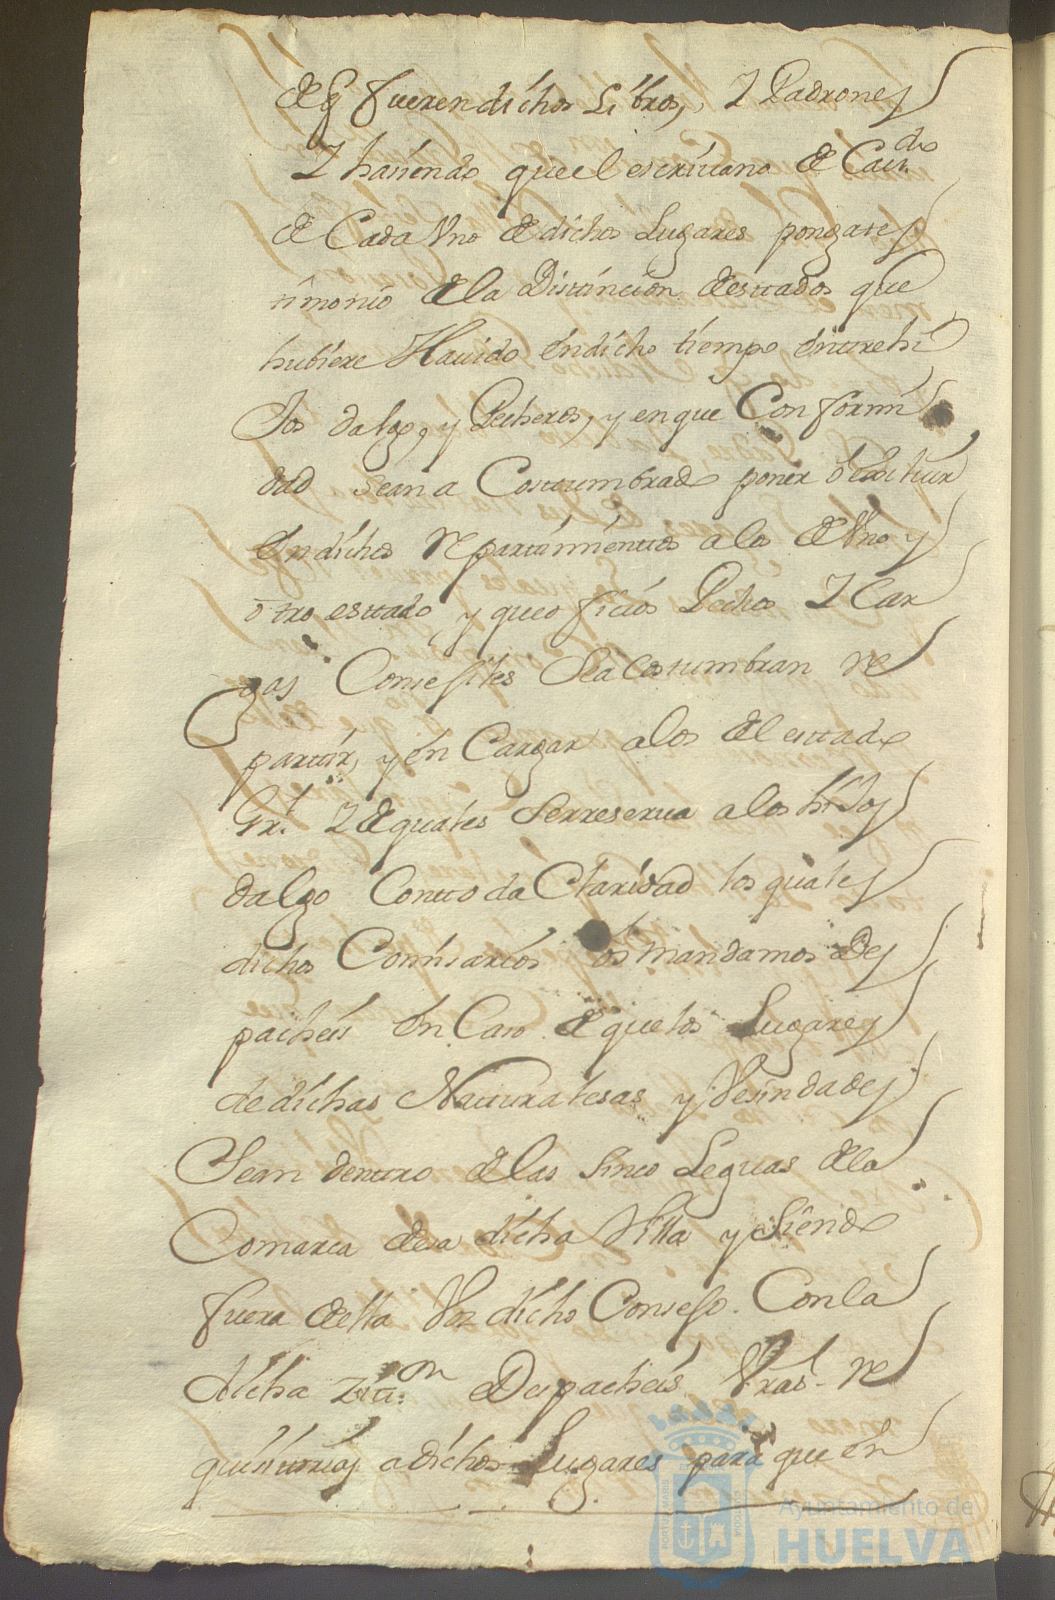 de q fueren dichos Libros, Y Padrones
Y hasiendo que el escrivano de Cavdo
de Cada Uno de dichos Lugares ponga tes
timonio de la Distincion de estados que
hubiere Havido en dicho tiempo entre hi
Jos dalgo, y Pecheros, y en que Conformi
dad sean a Costumbrado poner
En dichos repartimientos a los de Uno y
otro estado y que oficios Pechos Y Car
gas Consejiles Se a Costumbran re
partir, y en Cargar a los del estado
Grl. Y de quales Se rreserva a los hiJos
dalgo Con toda Claridad los quales
dichos Comisarios os mandamos Des
pacheis En Caso de que los Lugares
de dichas Naturalesas y Vesindades
Sean dentro de las Sinco Leguas de la
Comarca de esa dicha Villa y Siendo
fuera della Vos dicho Consejo. Con la
dicha Zitaon Despacheis Vras re
quisitorias a dichos Lugares para que en
Ayuntamiento de
HUELVA